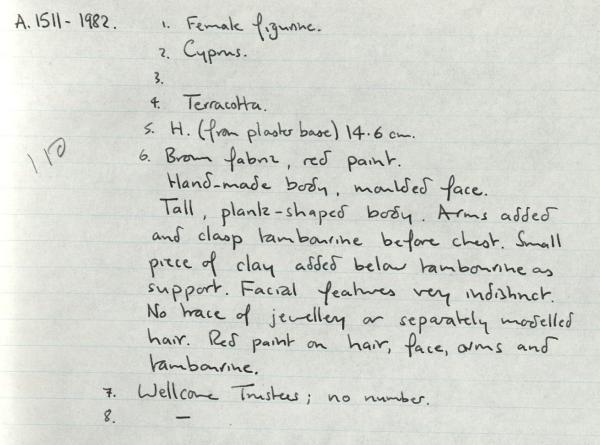 A.1511-1982. 1. Female figurine.
2. Cyprus.
3.
4. Terracotta.
5. H. (from plaster base) 14.6 cm.
110
6. Brown fabric, red paint.
Hand-made body, moulded face.
Tall, plank-shaped body. Arms added
and clasp tambourine before chest. Small
piece of clay added below tambourine as
support. Facial features very indistinct.
No trace of jewellery or separately modelled
hair. Red paint on hair, face, arms and
tambourine.
7. Wellcome Trustees; no number.
8. —